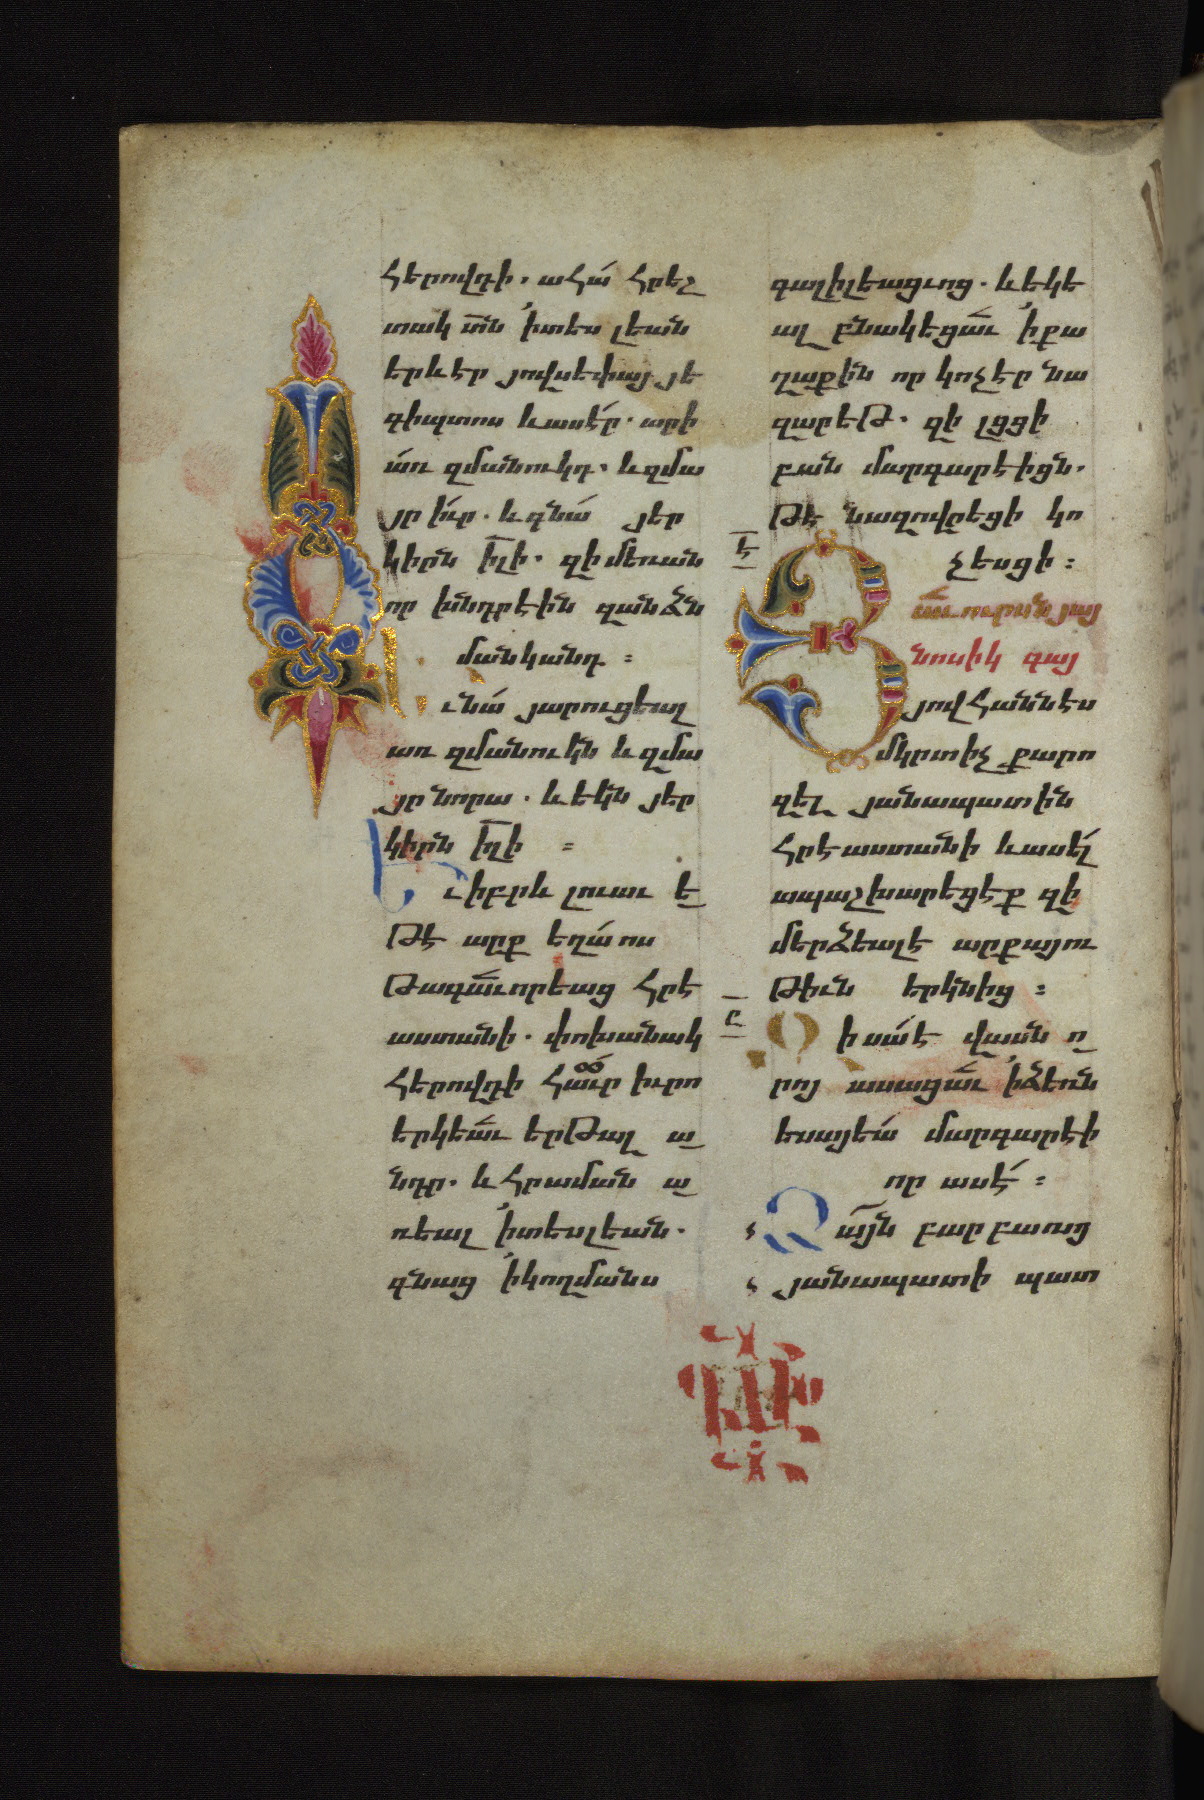 հերովդի. ահա՛ հրեշ
տակ տն ՚ի տեսլեան
երևէր յովսեփայ յե
գիպտոս և ասէ՛ր. արի
ա՛ռ զմանուկդ. և զմա
յր ի՛ւր. և գնա՛ յեր
կիրն իլի. զի մեռան
որ խնդրէին զանձն
մանկանդ ։
Եւ նա՛ յարուցեալ
առ զմանուկն և զմա
յր նորա. և եկն յեր
կիրն իղի ։
Եւ իբրև լուաւ ե
թէ արք եղա՛ոս
թագաւորեաց հրէ
աստանի. փոխանակ
հերովդի հաւր իւրո
երկեաւ երթալ ա
նդր. և հրաման ա
ռեալ ՚ի տեսլեան.
գնաց ՚ի կողմանս
գալիլեացւոց. և եկե
ալ բնակեցաւ ՚ի քա
ղաքին որ կոչէր նա
զարեթ. զի լցցի
բան մարգարէիցն.
թէ նազովրեցի կո
է
չեսցի ։
Յաւուրսն յայ
նոսիկ գայ
յովհաննէս
մկրտիչ քարո
զել յանապատին
հրէաստանի և ասէ՛լ
ապաշխարեցէք զի
մերձեալ է արքայու
թիւն երկնից ։
ը
Զի սա՛ է վասն ո
րոյ ասացաւ ՚ի ձեռն
եսայեա՛ մարգարէի
որ ասէ՛ ։
Ձայն բարբառոյ
յանապատի պատ